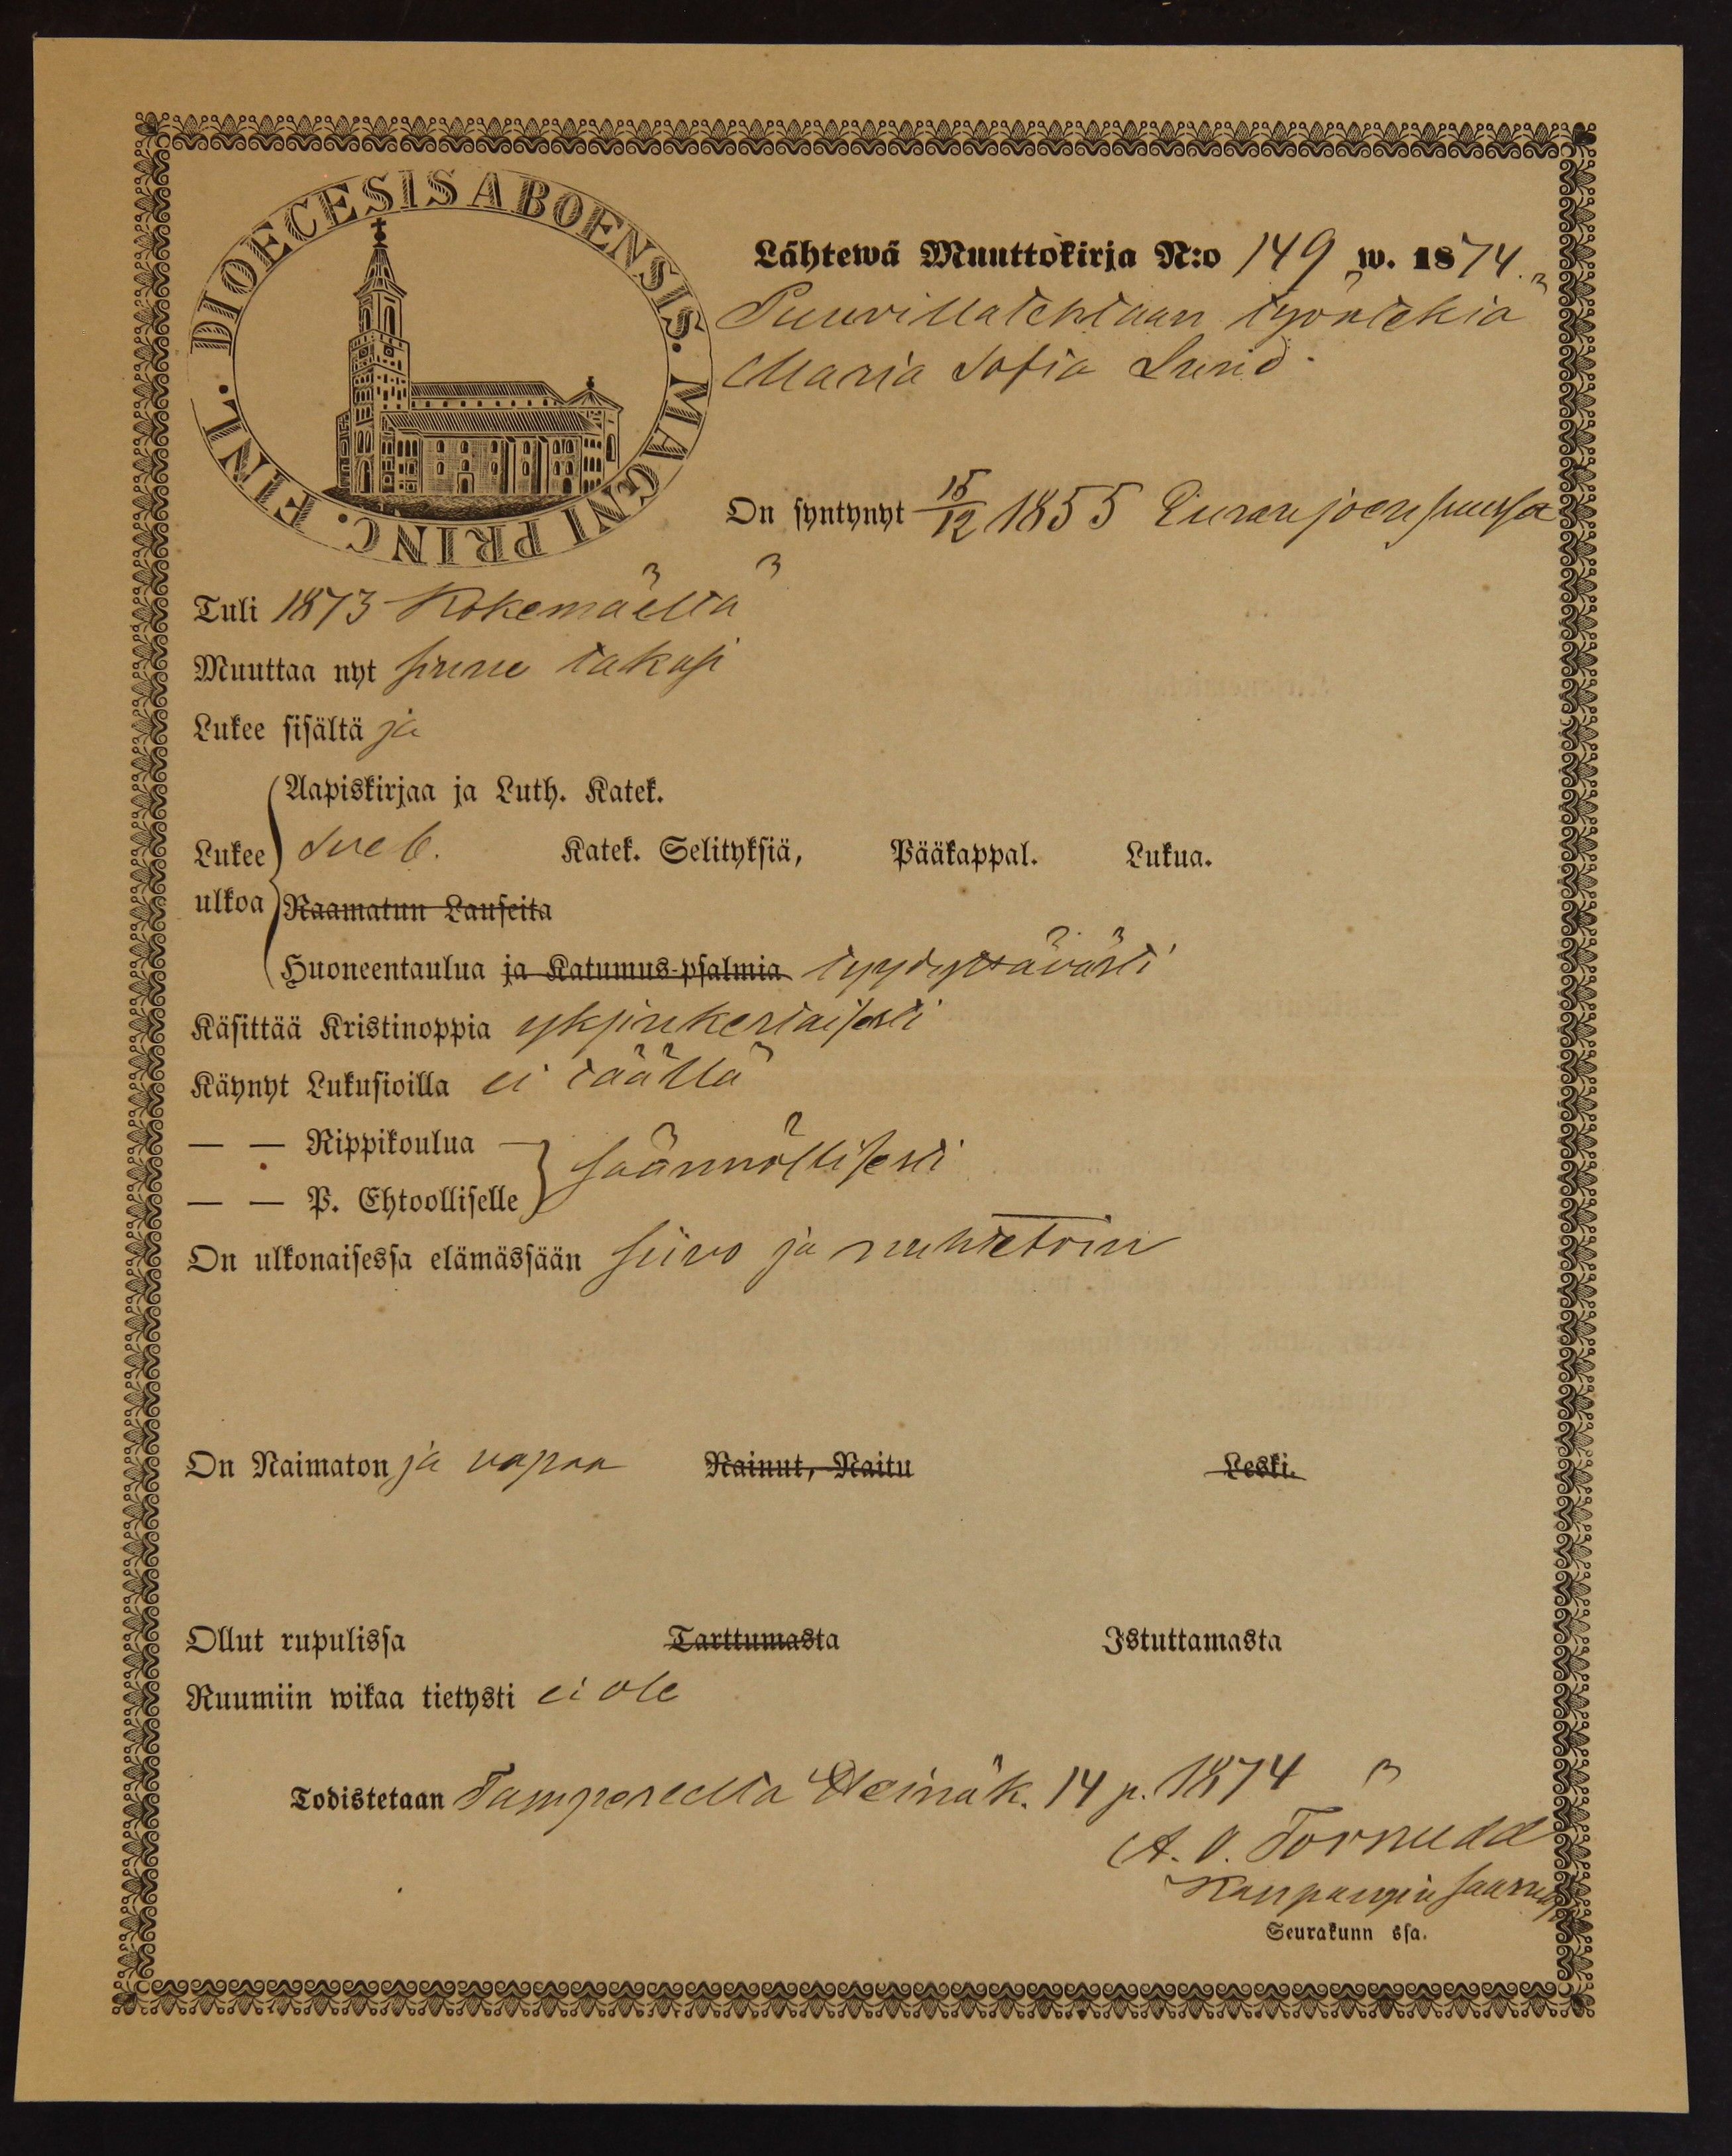 DIOECESIS ABOENSIS. MAGNI PRINC. FINL.
Lähtewä Muuttokirja N:o 149 w. 1874.
Puuvillatehtaan työntekiä
Maria Sofia Lund
On syntynyt 15/12 1855 Euranjoensuussa
Tuli 1873 Kokemäeltä
Muuttaa nyt sinne takasi
Lukee sisältä ja
Aapiskirjaa ja Luth. Katek.
Lukee ulkoa Katek. Selityksiä, Pääkappal. Lukua.
Raamatun Lauseita
Huoneentaulua ja Katumus-psalmia tyydyttävästi
Käsittää Kristinoppia yksinkertaisesti
Käynyt Lukusioilla ei täällä
— — Rippikoulua —
säännöllisesti
— — P. Ehtoolliselle
On ulkonaisessa elämässään siivo ja nuhtetoin
On Naimaton ja vapaa Nainut, Naitu Leski.
Ollut rupulissa Tarttumasta Istuttamasta
Ruumiin wikaa tietysti ei ole
Todistetaan Tampereella Heinäk. 14 p. 1874
A. O. Tornudd
Kaupungin saarnaj
Seurakunn ssa.